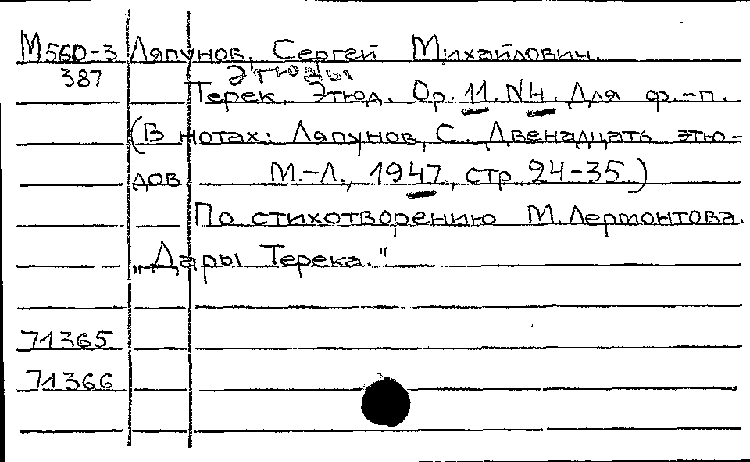 М560-3 Ляпунов, Сергей Михайлович.
387 этюды
Терек. Этюд. Op. 11. N4. Для ф.-п.
(В нотах: Ляпунов, С. Двенадцать этю-
дов М.-Л., 1947, стр. 24-35.)
По стихотворению М. Лермонтова.
„Дары Терека."
71365
71366